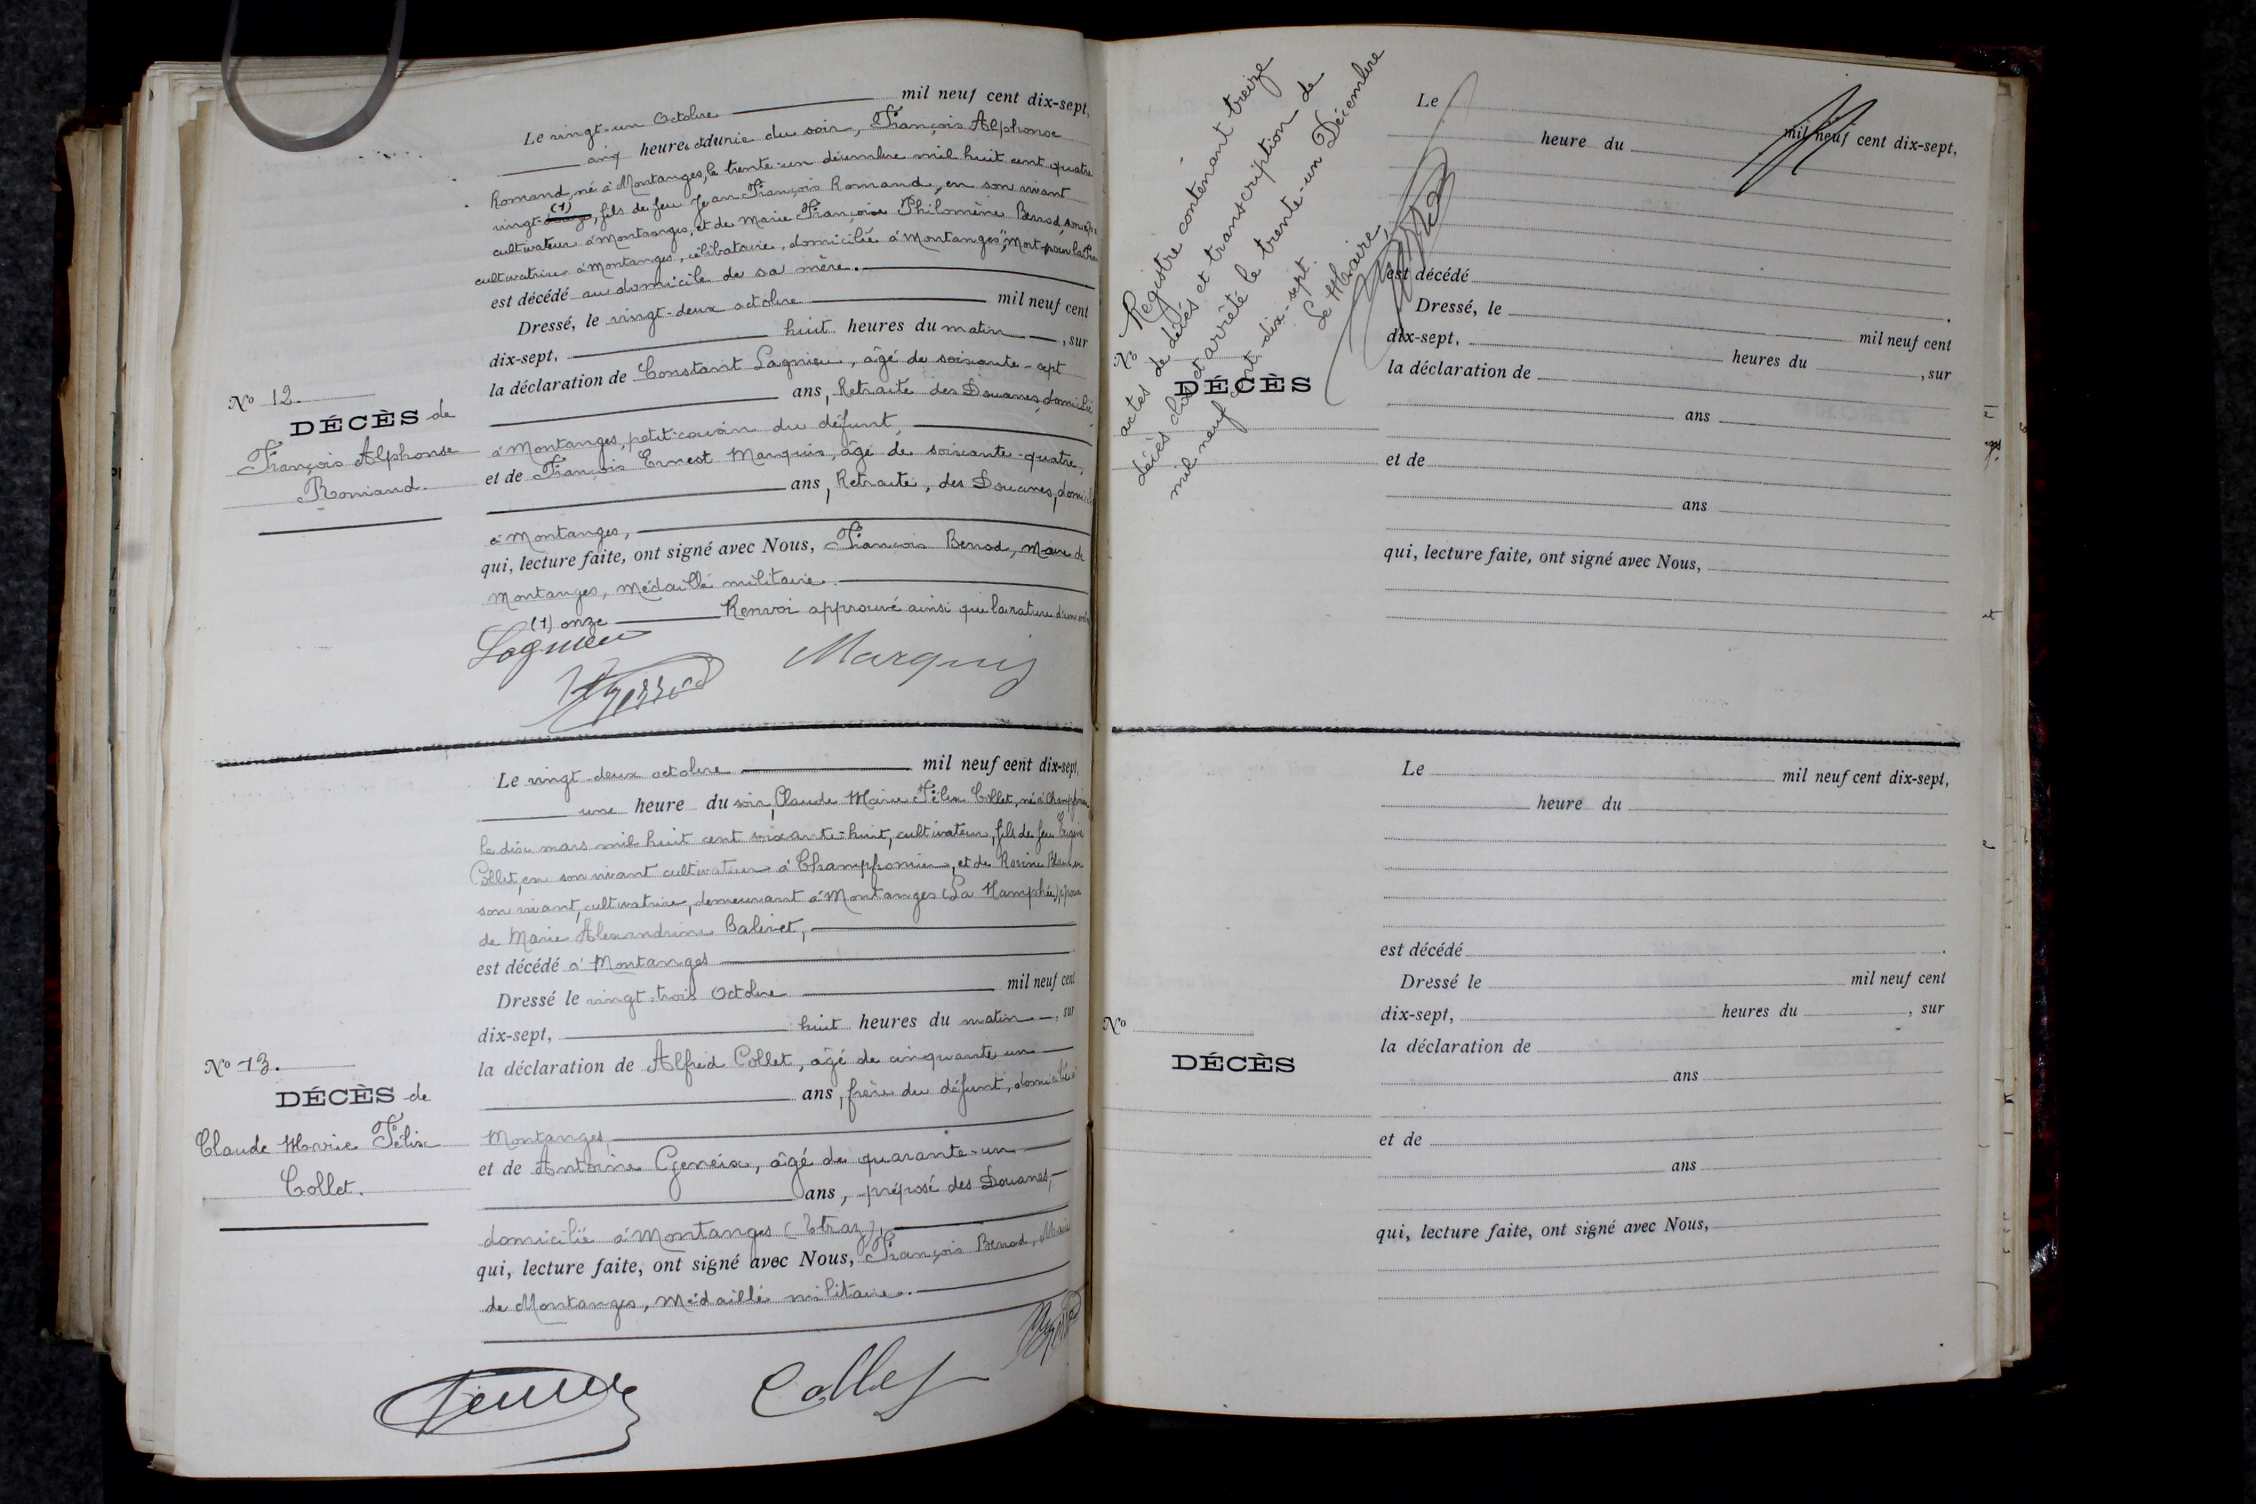 Le vingt-un Octobre mil neuf cent dix-sept,
cinq heures et demie du soir, François Alphonse
Romand, né à Montanges, le trente-un décembre mil huit cent quatre
vingt (1), fils de feu Jean François Romand, en son vivant
cultivateur à Montanges, et de Marie Françoise Philomène Berrod,
cultivatrice à Montanges, célibataire, domicilié à Montanges, "Mort pour la
est décédé au domicile de sa mère.
Dressé, le vingt-deux octobre mil neuf cent
dix-sept, huit heures du matin, sur
la déclaration de Constant Lagnieu, âgé de soixante-sept
ans, Retraité des Douanes, domicilié
N° 12.
DÉCÈS de
François Alphonse
Romand.
à Montanges, petit-cousin du défunt,
et de François Ernest Marquis, âgé de soixante-quatre,
ans, Retraité, des Douanes, domicilié
à Montanges,
qui, lecture faite, ont signé avec Nous, François Berrod, Maire de
Montanges, Médaillé militaire.
(1) onze Renvoi approuvé ainsi que la rature d'un mot
Lagnieu
Marquis
Berrod
Le vingt-deux octobre mil neuf cent dix-sept,
une heure du soir, Claude Marie Félix Collet, né à Champfromier
le dix mars mil huit cent soixante-huit, cultivateur, fils de feu Eugène
Collet, en son vivant cultivateur à Champfromier, et de Rosine Blanc en
son vivant, cultivatrice, demeurant à Montanges (La Mamphée) époux
de Marie Alexandrine Balivet,
est décédé à Montanges
Dressé le vingt-trois Octobre mil neuf cent
dix-sept, huit heures du matin, sur
la déclaration de Alfred Collet, âgé de cinquante un
ans, frère du défunt, domicilié à
N° 13.
DÉCÈS de
Claude Marie Félix
Collet.
Montanges,
et de Antoine Geneix, âgé de quarante-un
ans, préposé des Douanes,
domicilié à Montanges (Etraz),
qui, lecture faite, ont signé avec Nous, François Berrod, Maire
de Montanges, Médaillé militaire.
Collet
Registre contenant treize
actes de décès et transcription de
décès clos et arrêté le trente-un Décembre
mil neuf cent dix-sept.
Le Maire,
Le
mil neuf cent dix-sept,
heure du
est décédé
Dressé, le mil neuf cent
dix-sept, heures du , sur
la déclaration de
ans
N°
DÉCÈS
et de
ans
qui, lecture faite, ont signé avec Nous,
Le mil neuf cent dix-sept,
heure du
est décédé
Dressé le mil neuf cent
dix-sept, heures du , sur
la déclaration de
ans
N°
DÉCÈS
et de
ans
qui, lecture faite, ont signé avec Nous,